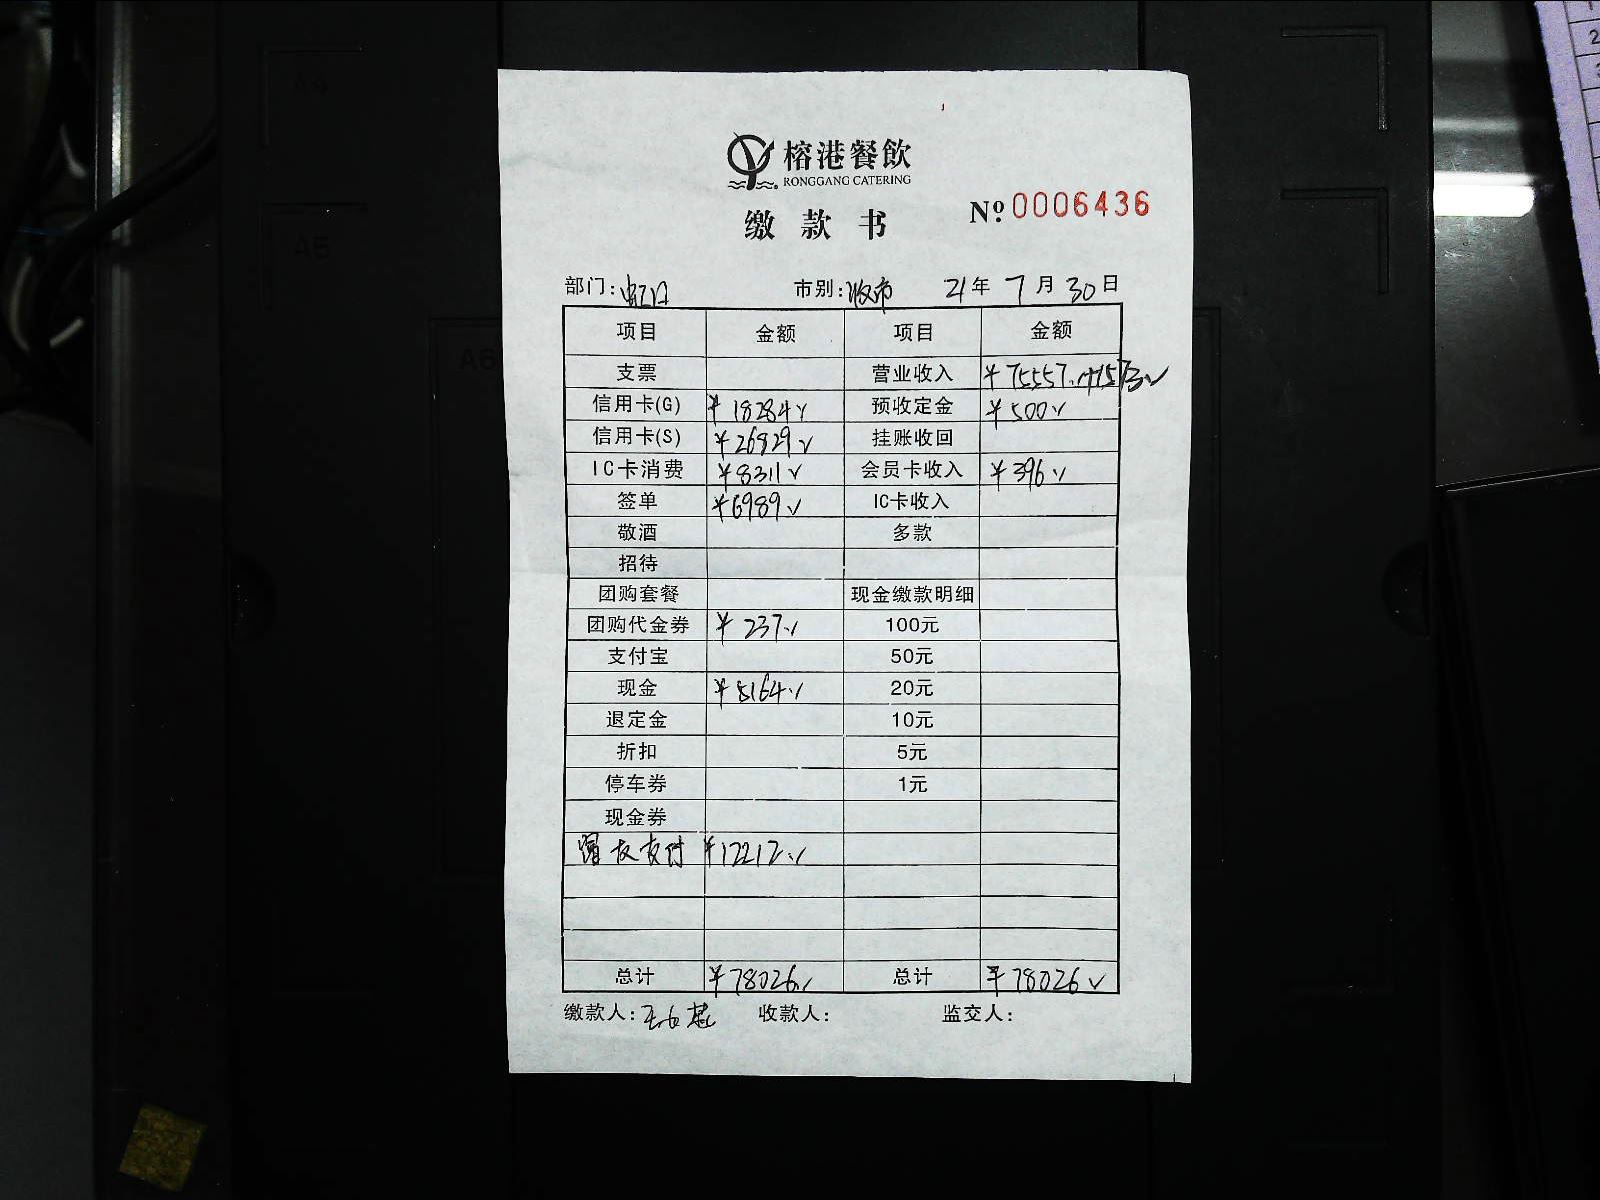 榕港餐飲
RONGGANG CATERING
缴款书 Nº 0006436
部门:虹口 市别:收市 21年 7月 30日
项目 金额 项目 金额
支票 营业收入 ¥75557.+1573
信用卡(G) ¥18284 预收定金 ¥500
信用卡(S) ¥26829 挂账收回
IC卡消费 ¥8311 会员卡收入 ¥396
签单 ¥6989 IC卡收入
敬酒 多款
招待
团购套餐 现金缴款明细
团购代金券 ¥237. 100元
支付宝 50元
现金 ¥5164. 20元
退定金 10元
折扣 5元
停车券 1元
现金券
富友支付 ¥12212.
总计 ¥78026. 总计 ¥78026
缴款人: 收款人: 监交人:
A5
A6